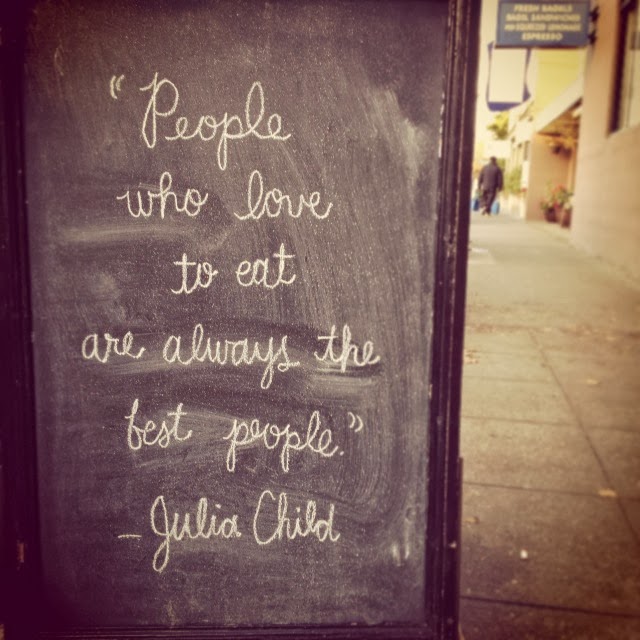 FRESH BAGELS
BASIL SANDWICHES
ESPRESSO
"People
who love
to eat
are always the
best people."
- Julia Child